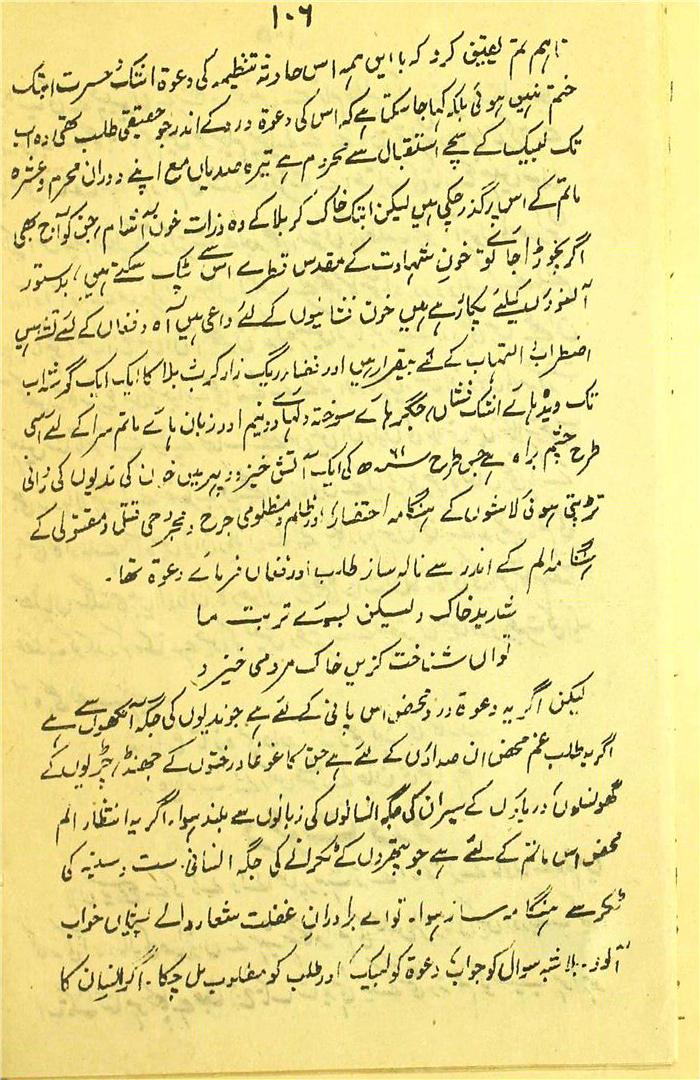 ۱۰۶
تاہم تم یقین کرو کہ با ایں ہمہ اس حادثہ عظیمہ کی دعوۃ اشک و حسرت ابتک
ختم نہیں ہوئی بلکہ کہا جا سکتا ہے کہ اس کی دعوۃ درد کے اندر جو حقیقی طلب تھی وہ اب
تک لبیک کے سچے استقبال سے محروم ہے تیرہ صدیاں مع اپنے دوران محرم و عشرہ
ماتم کے اس پر گذر چکی ہیں لیکن ابتک خاک کربلا کے وہ ذرات خون آشام جن کو آج بھی
اگر نچوڑا جائے تو خون شہادت کے مقدس قطرے اس سے ٹپک سکتے ہیں، بدستور
آنسوؤں کیلئے پکار رہے ہیں خون فشانیوں کے لئے داعی ہیں آہ و فغاں کے لئے تشنہ ہیں
اضطراب التہاب کے لئے بیقرار ہیں اور فضاء ریگ زار کرب و بلا کا ایک ایک گوشہ اب
تک دیدہ ہائے اشک فشاں، جگر ہائے سوختہ دلہائے دونیم اور زبان ہائے ماتم سرا کے لئے اسی
طرح چشم براہ ہے جس طرح ۶۱ھ کی ایک آتش خیز دوپہر میں خون کی ندیوں کی روانی
تڑپتی ہوئی لاشوں کے ہنگامہ احتضار اور ظلم و مظلومی جرح و مجروحی قتل و مقتولی کے
ہنگامہ الم کے اندر سے نالہ ساز طلب اور فغاں فرمائے دعوۃ تھا۔
شدیم خاک ولیکن ببوئے تربت ما
تواں شناخت کزیں خاک مردمی خیزد
لیکن اگر یہ دعوۃ درد محض اس پانی کے لئے ہے جو ندیوں کی جگہ آنکھوں سے بہے
اگر یہ طلب غم محض ان صداؤں کے لئے ہے جن کا غوغا درختوں کے جھنڈ، چڑیوں کے
گھونسلوں، دریاؤں کے سیران کی جگہ انسانوں کی زبانوں سے بلند ہوا۔ اگر یہ انتظار الم
محض اس ماتم کے لئے ہے جو پتھروں کے ٹکرانے کی جگہ انسانی دست و سینہ کی
ٹکر سے ہنگامہ ساز ہوا۔ تو اے برادران غفلت شعار و اے خواب
آلود۔ بلاشبہ سوال کو جواب، دعوۃ کو لبیک اور طلب کو مطلوب مل چکا۔ اگر انسان کا